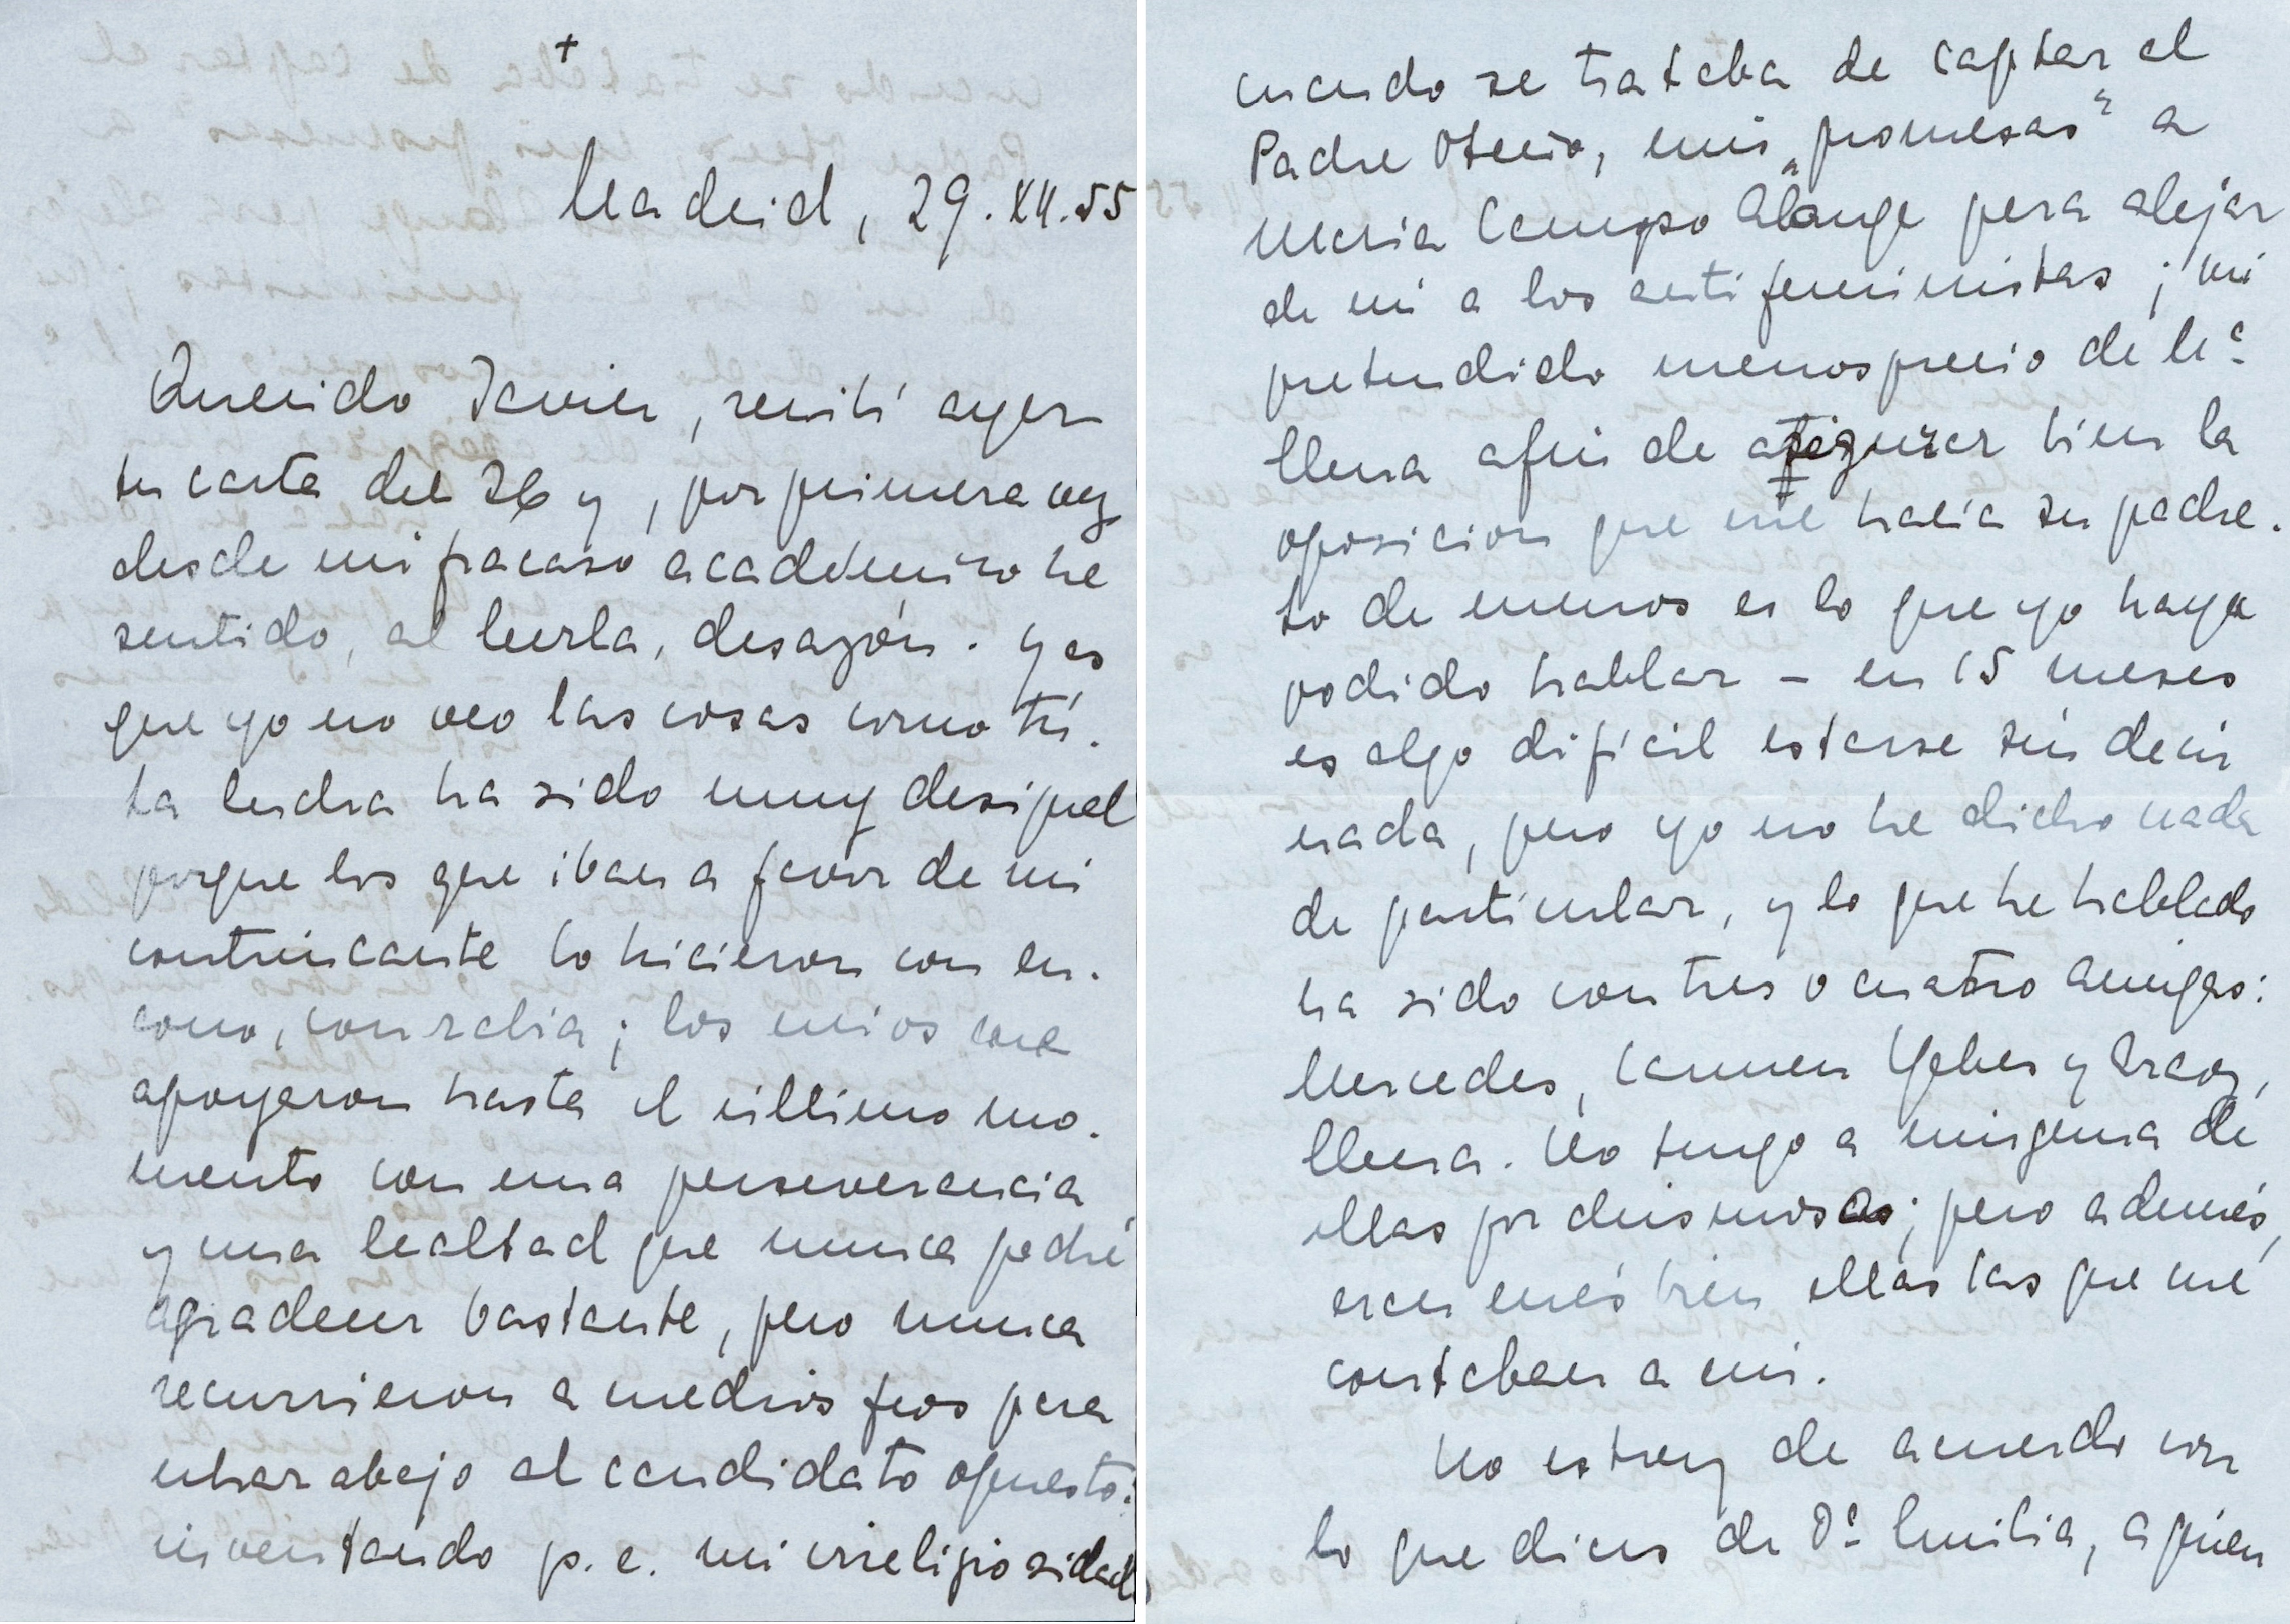 +
Madrid, 29.XII.55
Querido Javier, recibí ayer
tu carta del 26 y, por primera vez
desde mi fracaso académico he
sentido, al leerla, desazón. Y es
que yo no veo las cosas como tú.
La lucha ha sido muy desigual
porque los que iban a favor de mi
contrincante lo hicieron con en-
cono, con rabia; los míos me
apoyaron hasta el último mo-
mento con una perseverancia
y una lealtad que nunca podré
agradecer bastante, pero nunca
recurrieron a medios feos para
echar abajo al candidato opuesto:
inventando p. e. mi irreligiosidad
cuando se trataba de captar al
Padre Otecio, mis "promesas" a
María Campo Alange para alejar
de mí a los antifeministas; mi
pretendido menosprecio de Mª
Elena a fin de asegurar bien la
oposición que me hacía su padre.
Lo de menos es lo que yo haya
podido hablar – en 15 meses
es algo difícil estarse sin decir
nada, pero yo no he dicho nada
de particular, y lo que he hablado
ha sido con tres o cuatro amigas:
Mercedes, Carmen Yebes y Aracy,
Elena. No tengo a ninguna de
ellas por chismosas; pero además,
eran más bien ellas las que me
contaban a mí.
No estoy de acuerdo con
lo que dices de Dª Emilia, a quien